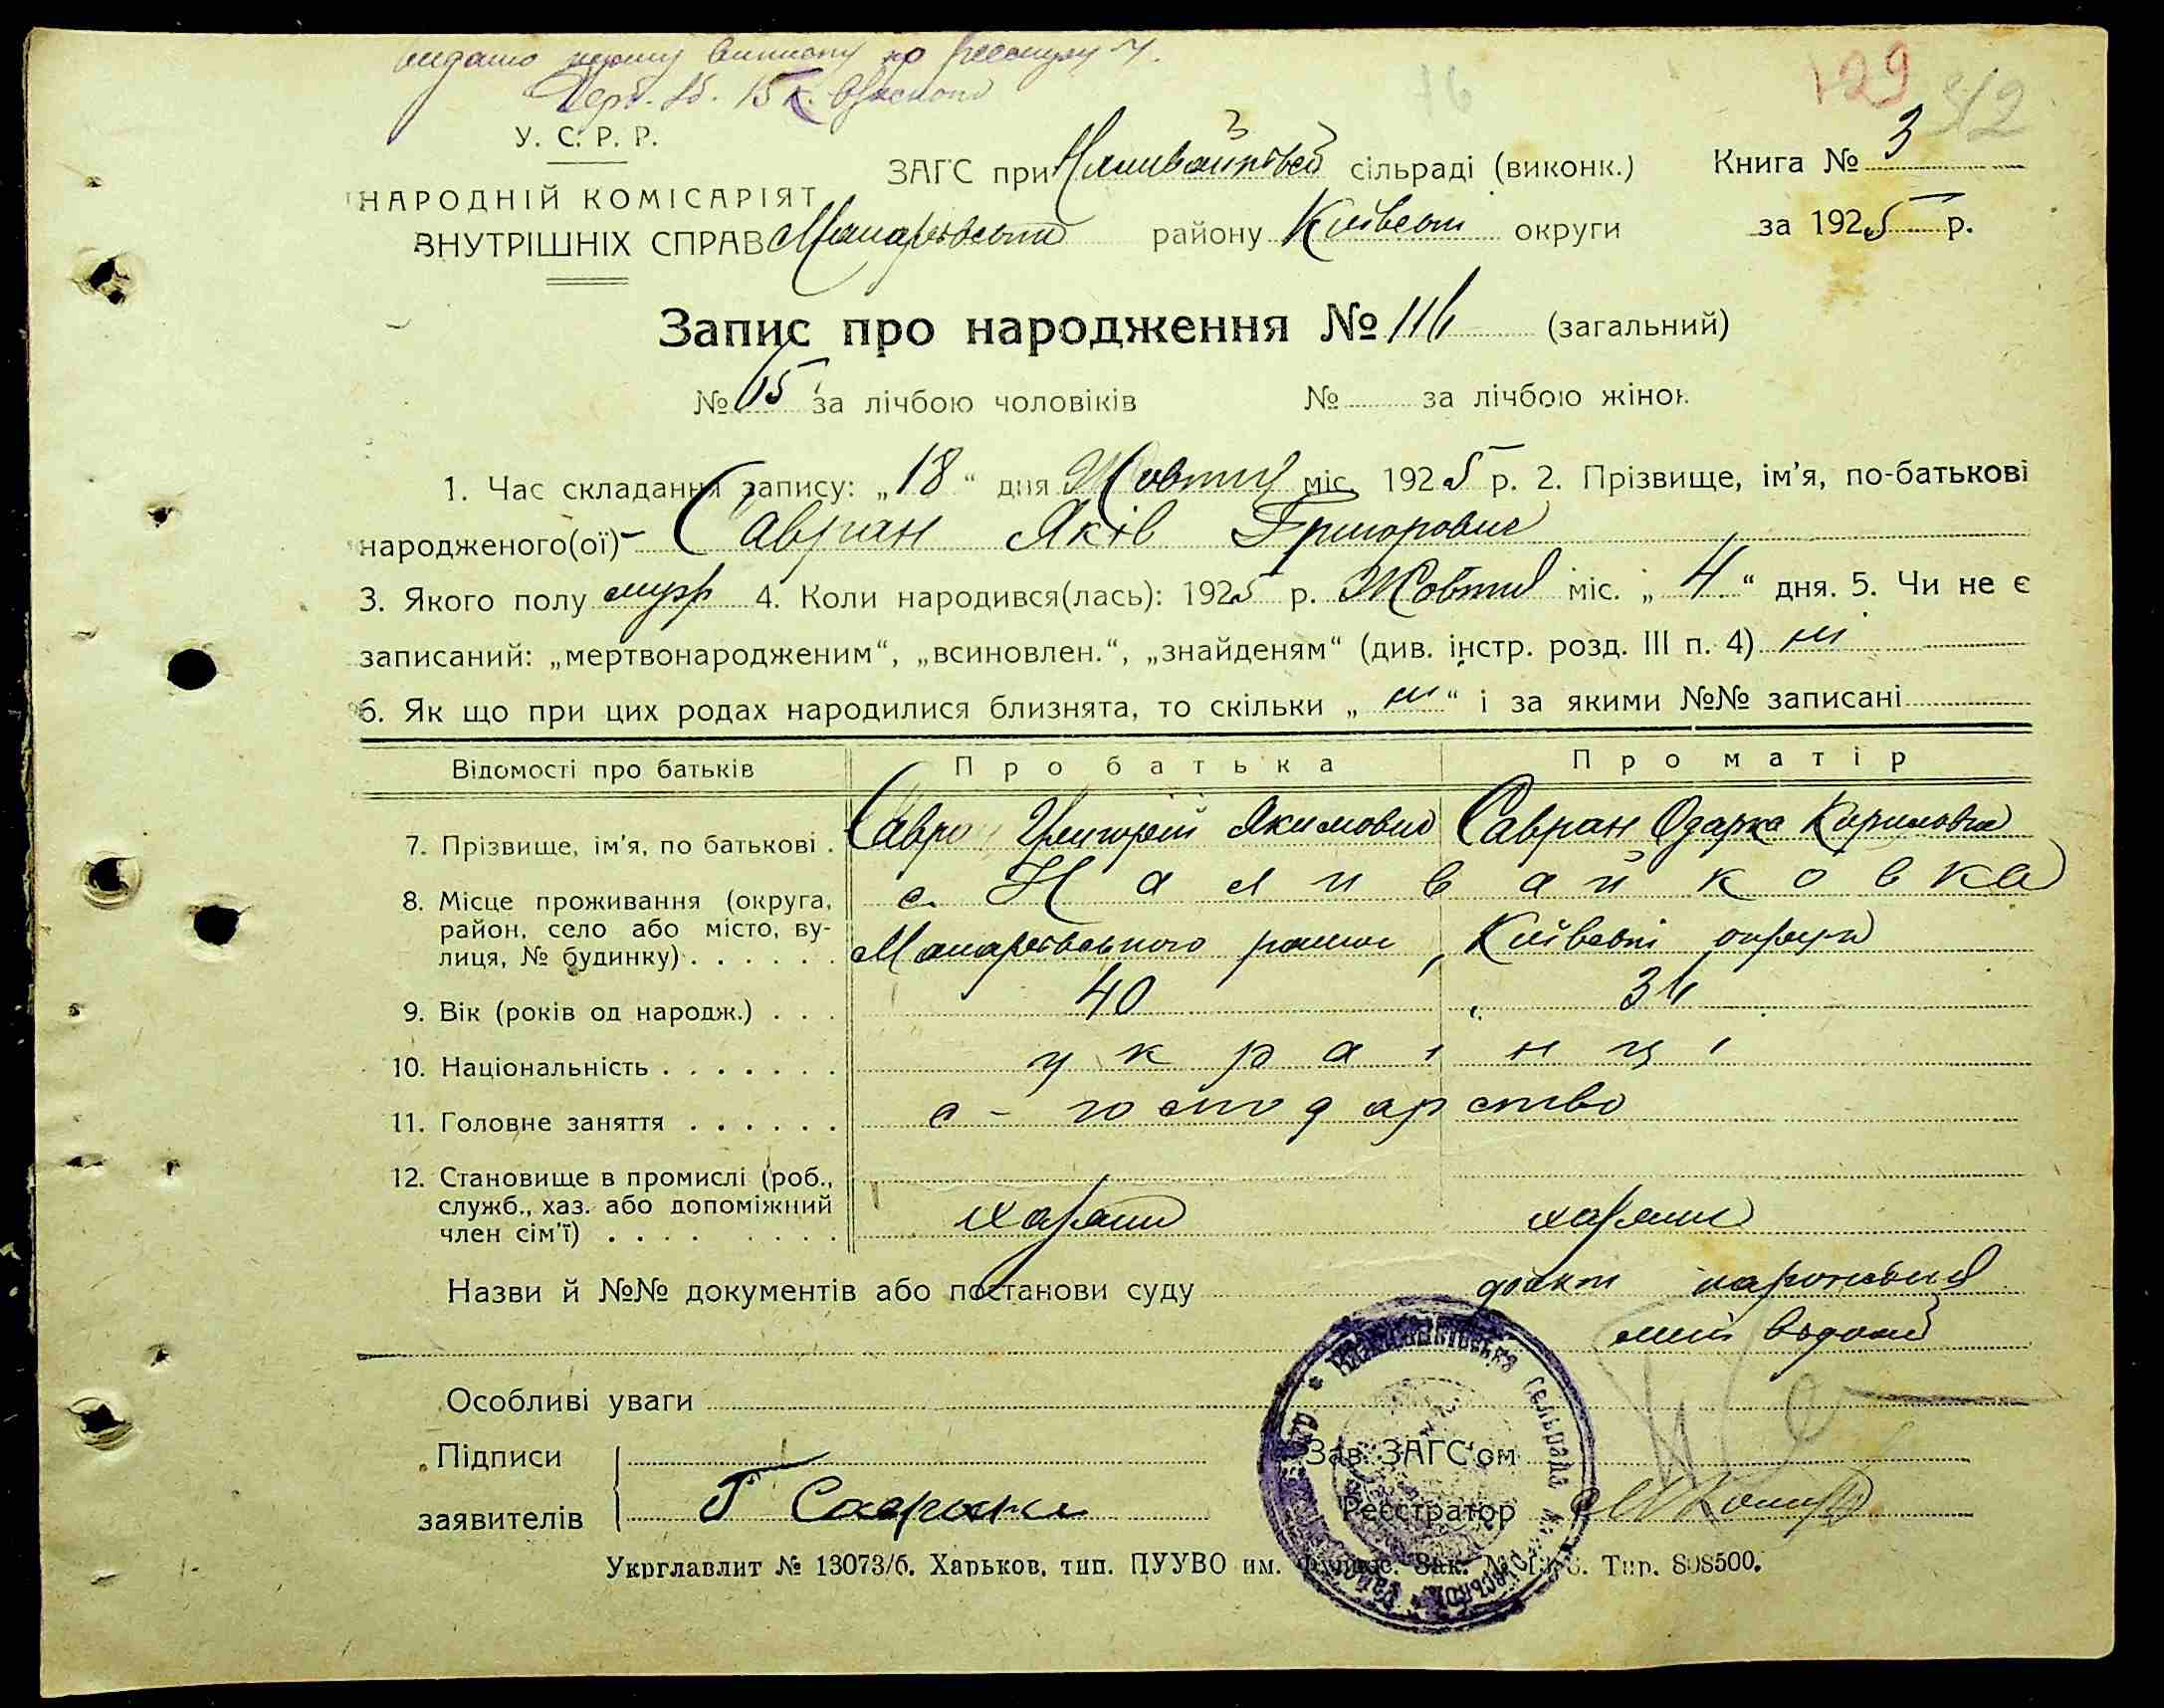 видано
Дерб. зб. 15 к.
129 312
У. С. Р. Р.
НАРОДНІЙ КОМІСАРІЯТ
ВНУТРІШНІХ СПРАВ
ЗАГС при Наливайківській сільраді (виконк.) Книга № 3
Макарівського району Київської округи за 1925 р.
Запис про народження № 116 (загальний)
№ 65 за лічбою чоловіків № за лічбою жінок
1. Час складання запису: „18“ дня Жовтня міс. 1925 р. 2. Прізвище, ім'я, по-батькові
народженого(ої) Савран Яків Григорович
3. Якого полу муж 4. Коли народився(лась): 1925 р. Жовтня міс. „4“ дня. 5. Чи не є
записаний: „мертвонародженим“, „всиновлен.“, „знайденям“ (див. інстр. розд. III п. 4) ні
6. Як що при цих родах народилися близнята, то скільки „ні“ і за якими №№ записані
Відомості про батьків Про батька Про матір
7. Прізвище, ім'я, по батькові . Савран Григорій Якимович Савран Одарка Кириловна
8. Місце проживання (округа, с. Наливайковка
район, село або місто, ву- Макарівського району, Київської округи
лиця, № будинку) . . . . . .
9. Вік (років од народж.) . . . 40 36
10. Національність . . . . . . . українці
11. Головне заняття . . . . . . с-господарство
12. Становище в промислі (роб.,
служб., хаз. або допоміжний
член сім'ї) . . . . . . . .
Назви й №№ документів або постанови суду факт народження
мені відомий
Особливі уваги
Підписи Зав. ЗАГС'ом
заявителів Г Савран Реєстратор
Укрглавлит № 13073/б. Харьков, тип. ПУУВО им. Фрунзе. Зак. № Тир. 808500.